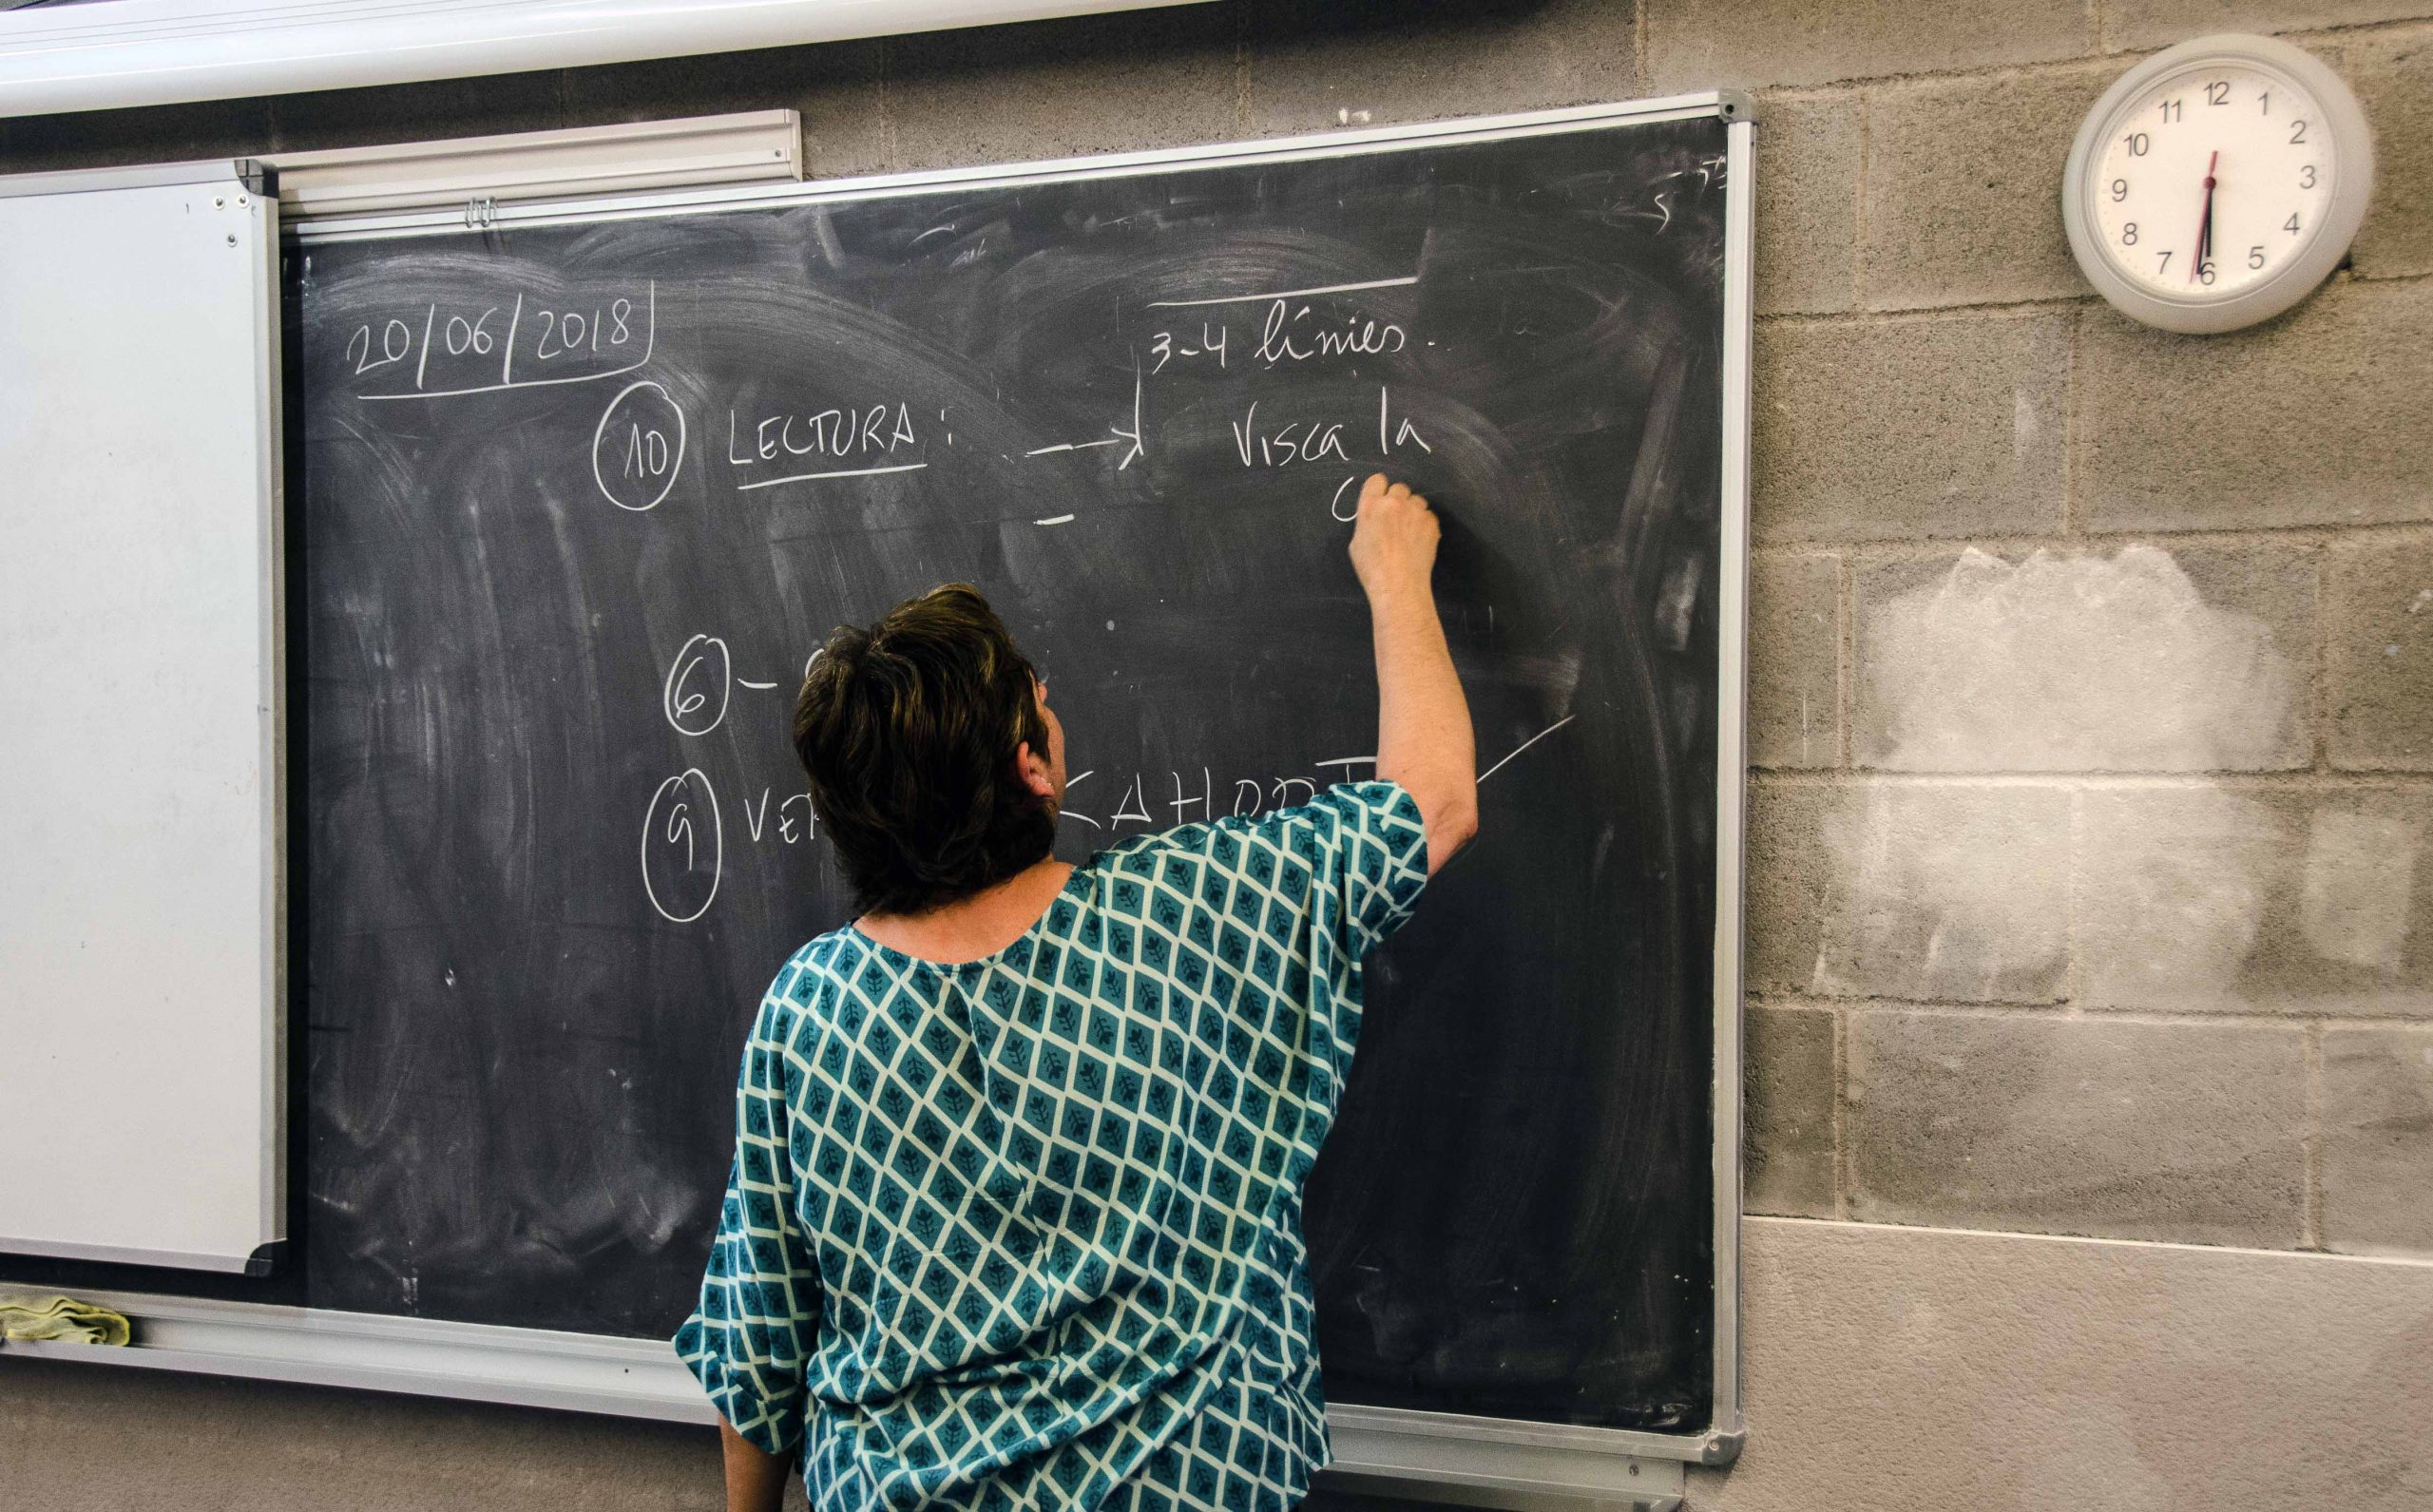 20/06/2018
3-4 línies.
10 LECTURA: → Visca la
6 -
9
12
1
2
3
4
5
6
7
8
9
10
11